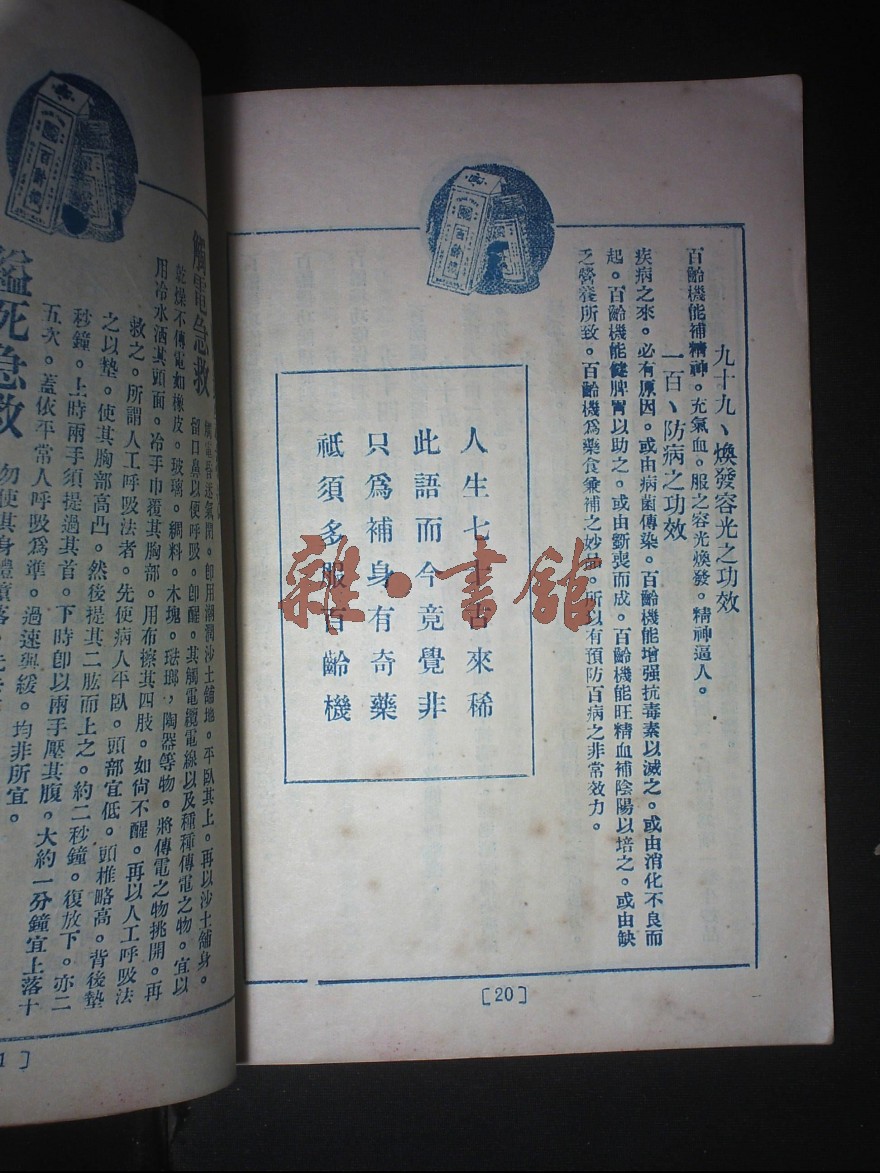 九十九、煥發容光之功效
百齡機能補精神。充氣血。服之容光煥發。精神逼人。
一百、防病之功效
疾病之來。必有原因。或由病菌傳染。百齡機能增强抗毒素以滅之。或由消化不良而
起。百齡機能健脾胃以助之。或由斵喪而成。百齡機能旺精血補陰陽以培之。或由缺
乏營養所致。百齡機爲藥食兼補之妙品。所以有預防百病之非常效力。
人生七十古來稀
此語而今竟覺非
只爲補身有奇藥
祗須多服百齡機
[20]
雜·書館
百齡機
觸電急救
觸電昏迷氣閉。卽用潮潤沙土舖地。平臥其上。再以沙土舖身。
留口鼻以便呼吸。卽醒。其觸電纜電線以及種種傳電之物。宜以
乾燥不傳電如橡皮。玻璃。綢料。木塊。琺瑯，陶器等物。將傳電之物挑開。再
用冷水洒其頭面。冷手巾覆其胸部。用布擦其四肢。如尙不醒。再以人工呼吸法
救之。所謂人工呼吸法者。先使病人平臥。頭部宜低。頭椎略高。背後墊
之以墊。使其胸部高凸。然後提其二肱而上之。約二秒鐘。復放下。亦二
秒鐘。上時兩手須提過其首。下時卽以兩手壓其腹。大約一分鐘宜上落十
五次。蓋依平常人呼吸爲準。過速與緩。均非所宜。
縊死急救
勿使其身體墮落。
百齡機
1]